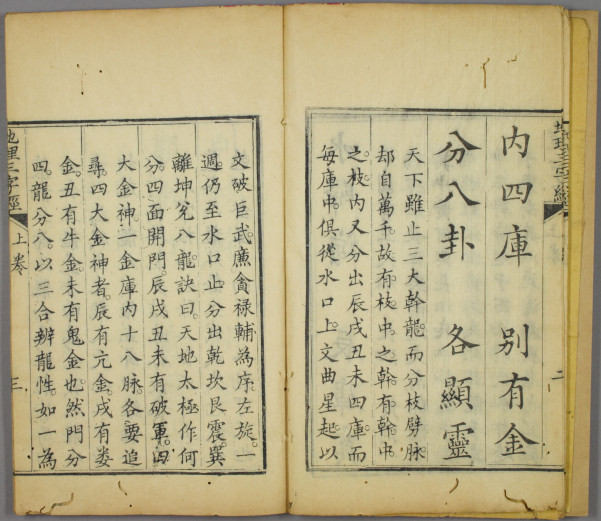 地理三字經
上
二
內四庫 別有金
分八卦 各顯靈
天下雖止三大幹龍而分枝劈脉
却自萬千故有枝中之幹有幹中
之枝內又分出辰戌丑未四庫而
每庫中俱從水口上文曲星起以
文破巨武廉貪祿輔為序左旋一
週仍至水口止分出乾坎艮震巽
離坤兌八龍訣曰天地太極作何
分四面開門辰戌丑未有破軍
大金神一金庫內十八脉各要追
尋四大金神者辰有亢金戌有婁
金丑有牛金未有鬼金也然門分
四龍分八以三合辨龍性如一為
地理三字經
上卷
三